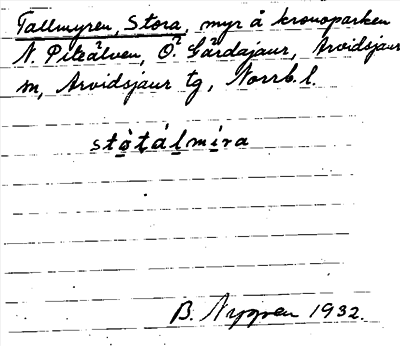 Tallmyren, Stora, myr å kronoparken
N. Piteälven, Ö. Gårdajaur, Arvidsjaur
m, Arvidsjaur tg, Norrb. l.
stòtálmíra
B. Nygren 1932.